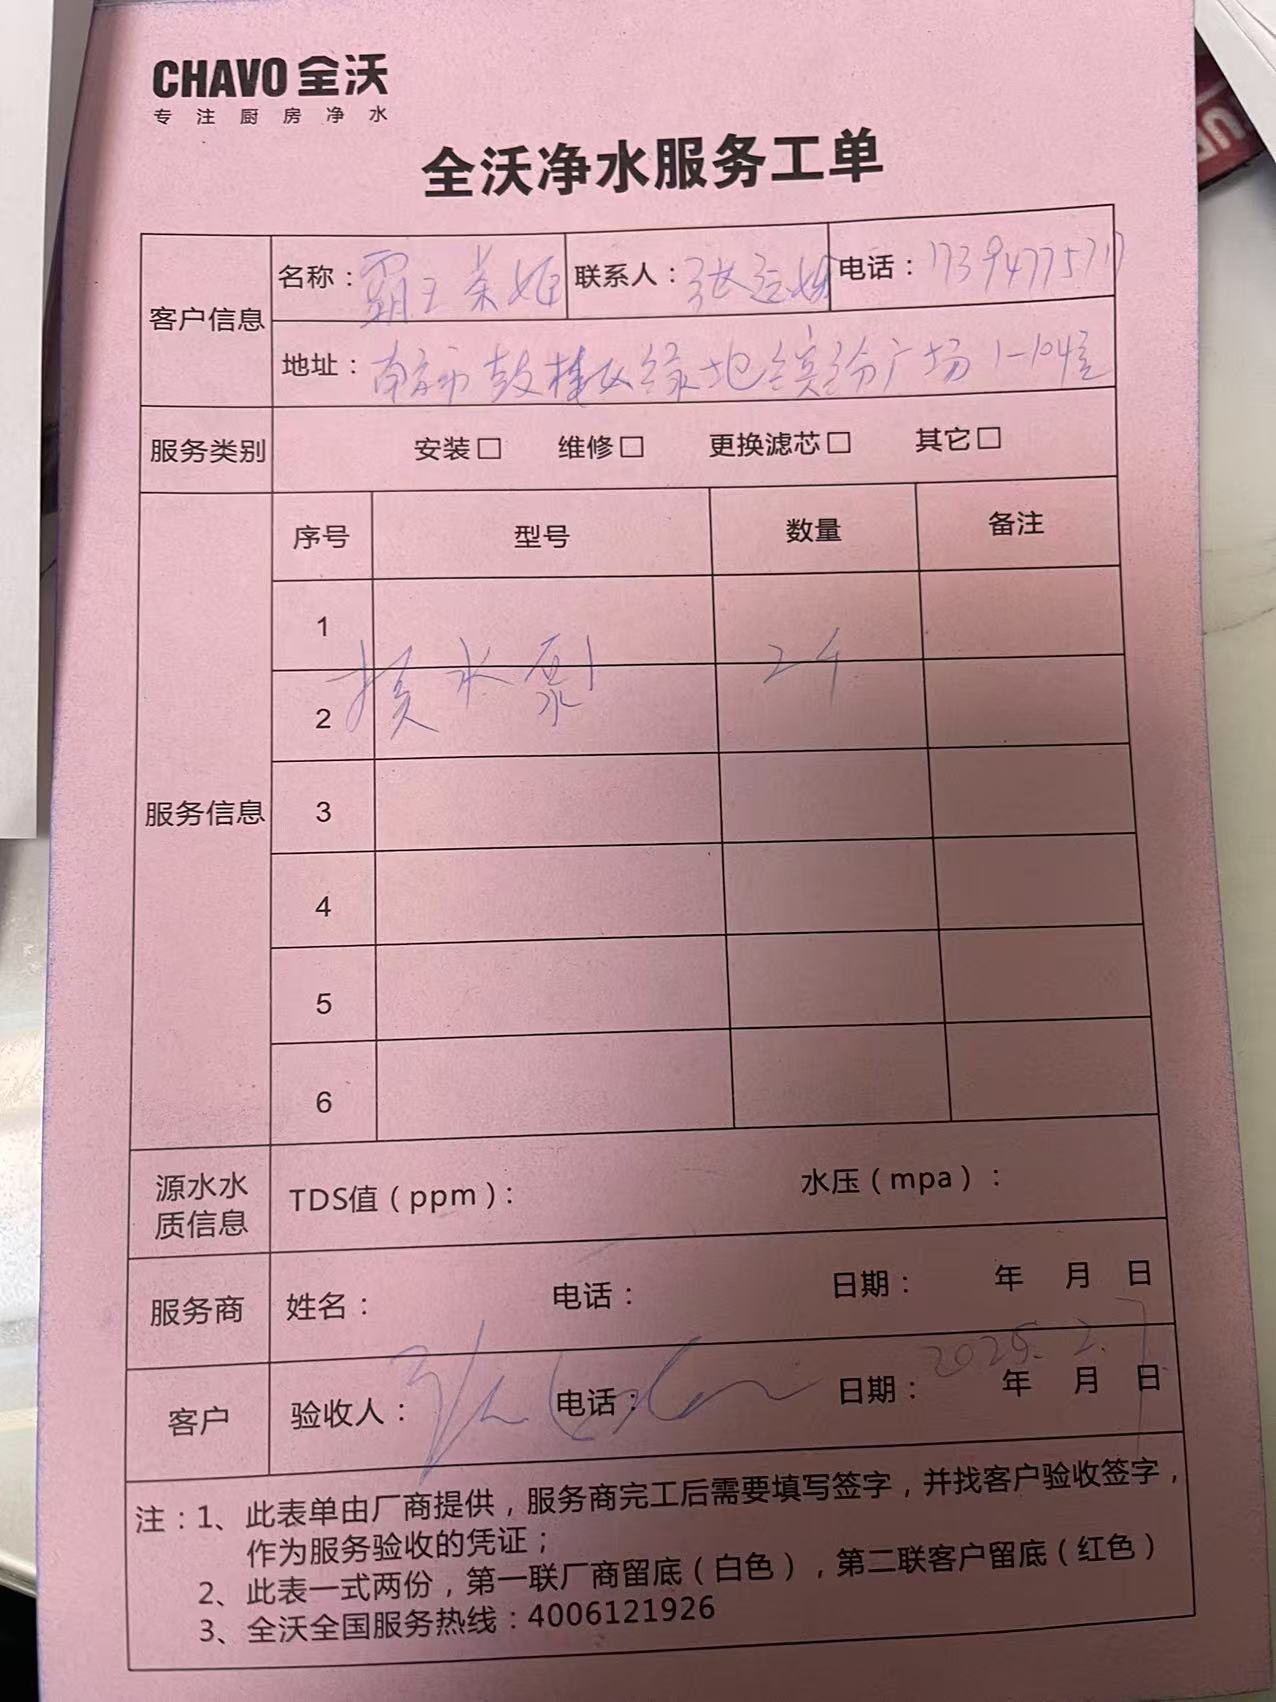 CHAVO 全沃
专注厨房净水
全沃净水服务工单
客户信息
名称：霸王茶姬 联系人：张 电话：1739477571
地址：南京市鼓楼区绿地缤纷广场1-104室
服务类别 安装□ 维修□ 更换滤芯□ 其它□
服务信息
序号 型号 数量 备注
1
2
换水泵 2个
3
4
5
6
源水水质信息 TDS值（ppm）： 水压（mpa）：
服务商 姓名： 电话： 日期： 年 月 日
客户 验收人： 电话： 日期： 2025.2.7. 年 月 日
注：1、此表单由厂商提供，服务商完工后需要填写签字，并找客户验收签字，
作为服务验收的凭证；
2、此表一式两份，第一联厂商留底（白色），第二联客户留底（红色）
3、全沃全国服务热线：4006121926